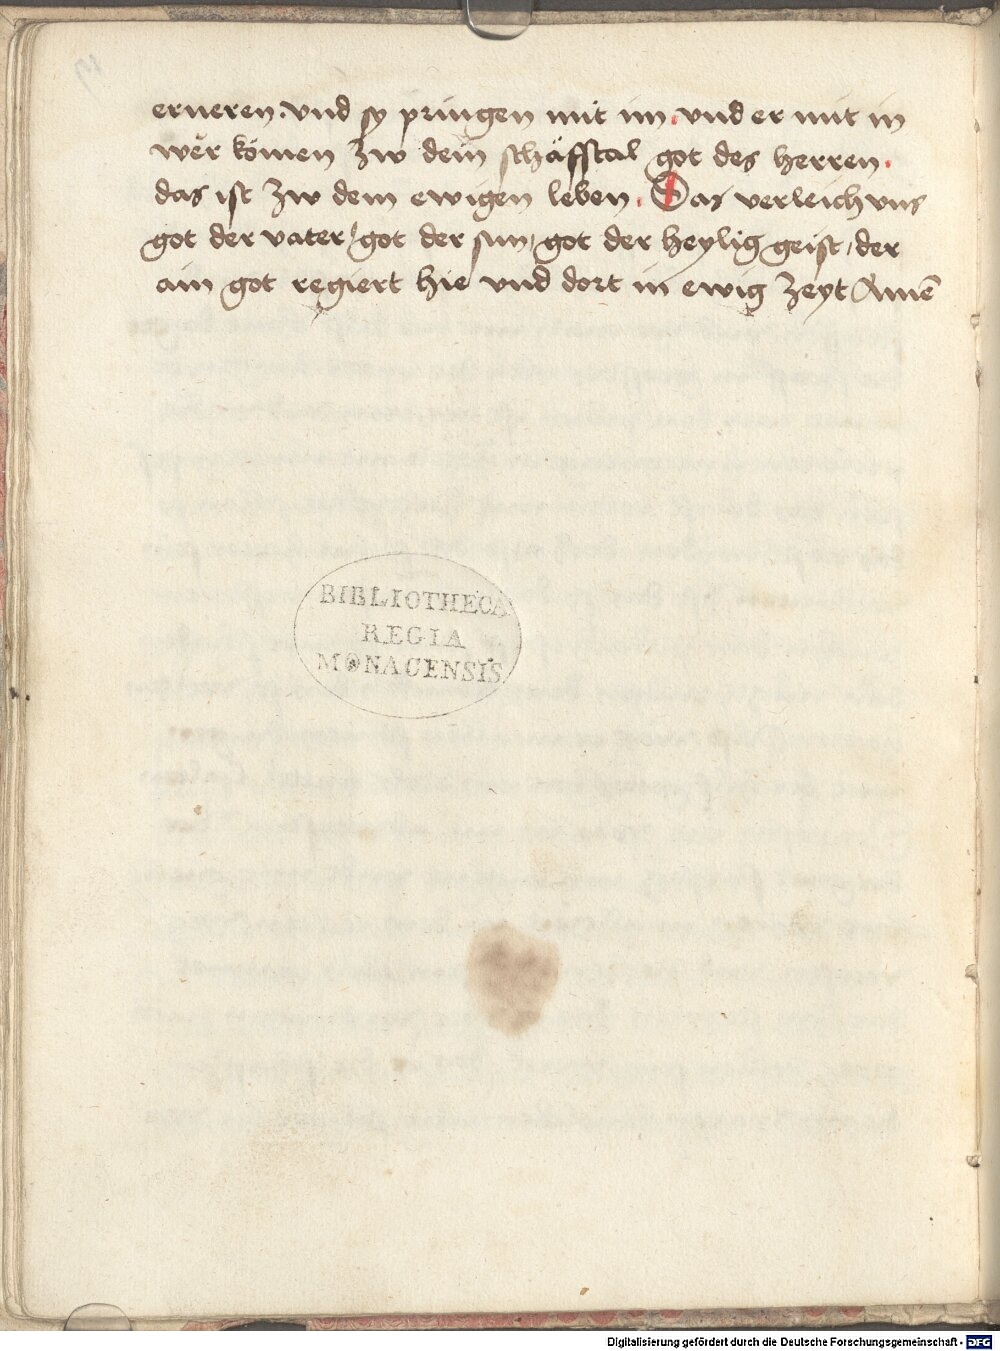 erneren. vnd sy pringen mit im. vnd er mit in
wër kömen zw dem schäfstal got des herren.
das ist zw dem ewigen leben. Das verleich vns
got der vater / got der sun / got der heylig geist / der
ain got regiert hie vnd dort in ewig zeyt Amē
BIBLIOTHECA
REGIA
MONACENSIS.
Digitalisierung gefördert durch die Deutsche Forschungsgemeinschaft - DFG